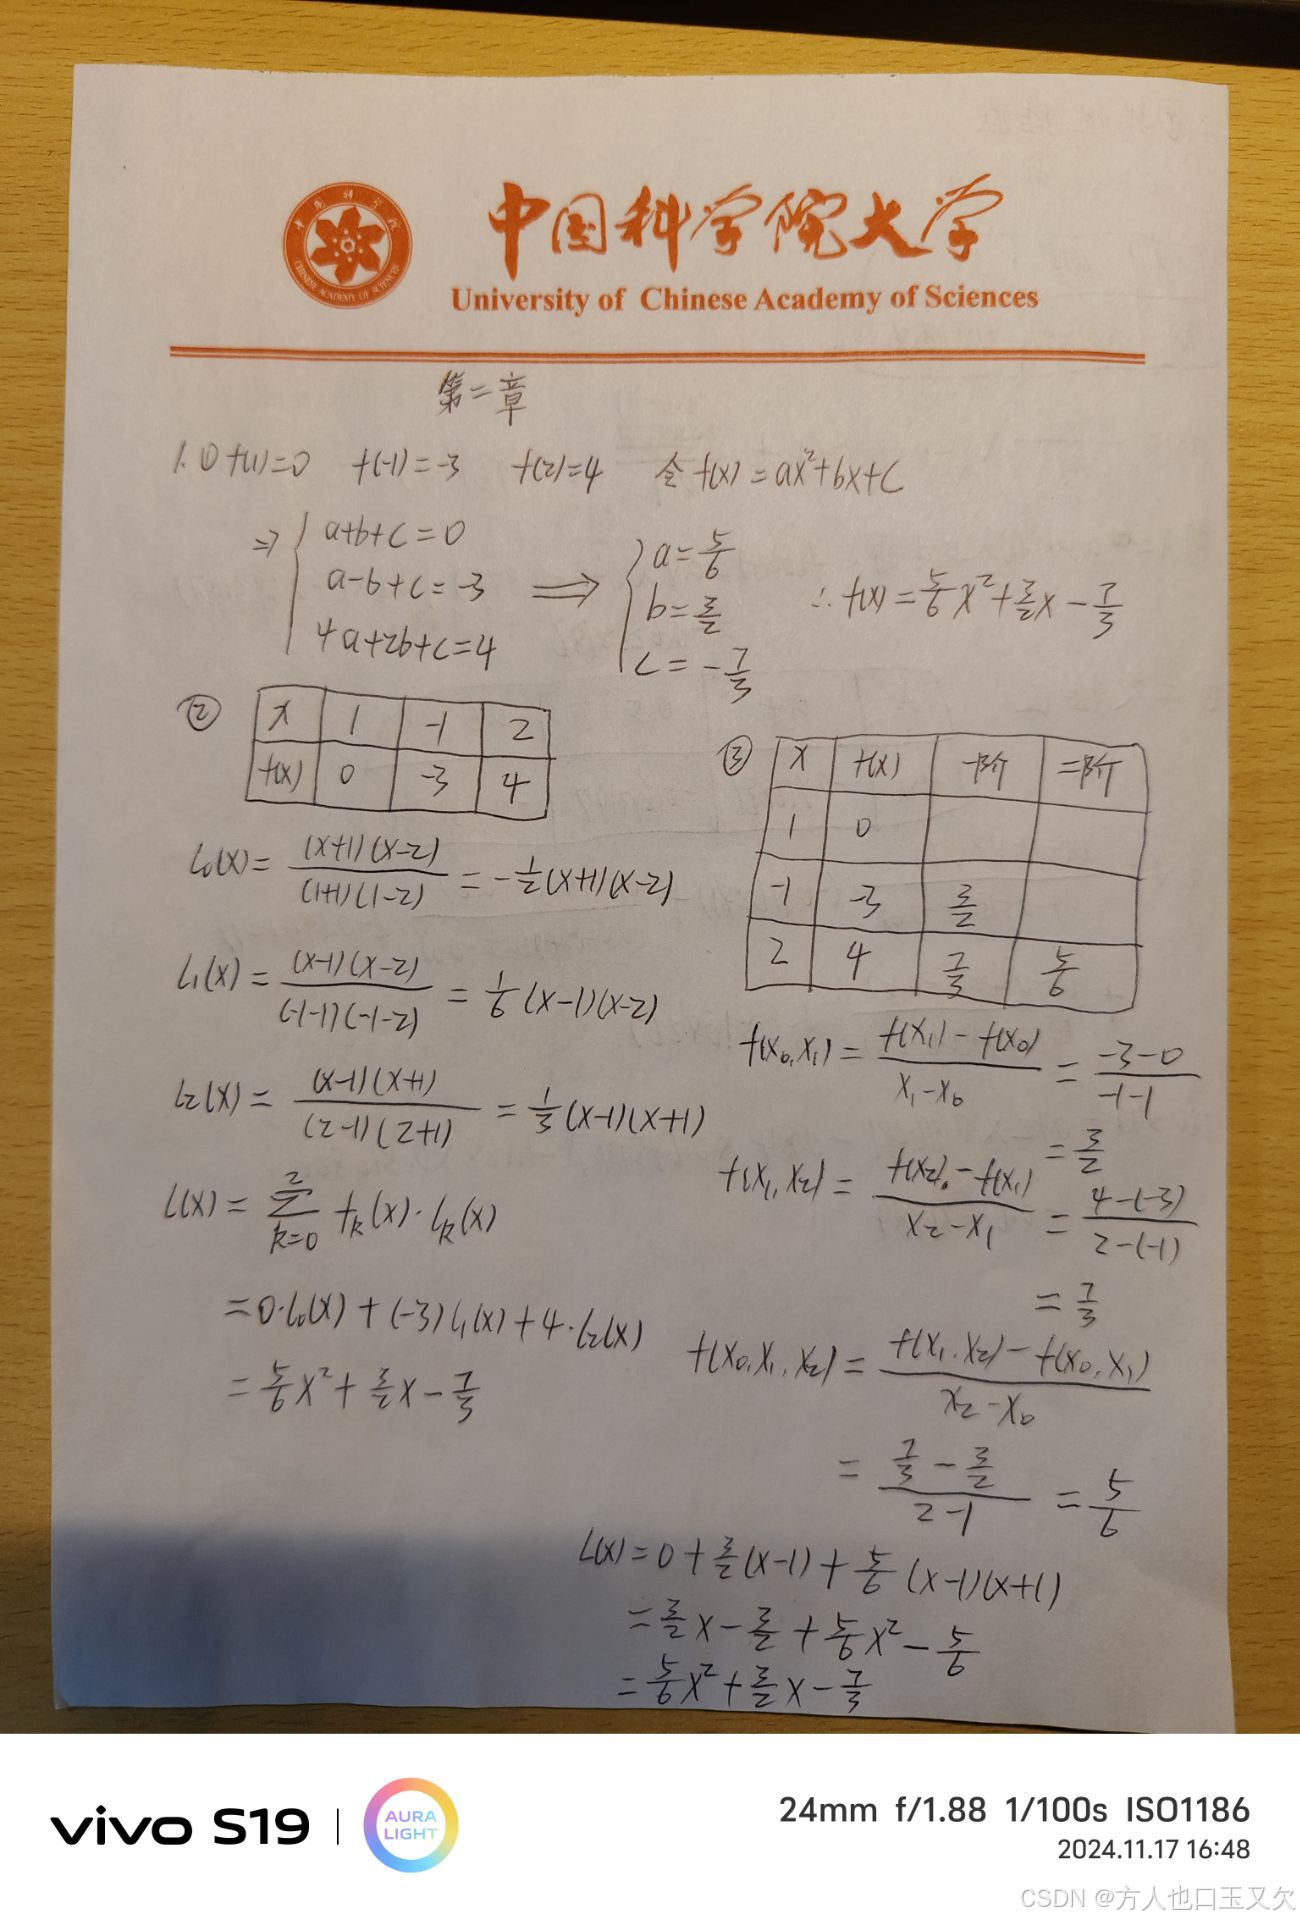 中国科学院大学
University of Chinese Academy of Sciences
第二章
1. ① f(1)=0 f(-1)=-3 f(2)=4 令 f(x)=ax²+bx+c
⇒ { a+b+c=0
a-b+c=-3
4a+2b+c=4
⇒ { a=5/6
b=3/2
c=-7/3
∴ f(x)=5/6x²+3/2x-7/3
② x 1 -1 2
f(x) 0 -3 4
l₀(x)=(x+1)(x-2)/(1+1)(1-2)=-1/2(x+1)(x-2)
l₁(x)=(x-1)(x-2)/(-1-1)(-1-2)=1/6(x-1)(x-2)
l₂(x)=(x-1)(x+1)/(2-1)(2+1)=1/3(x-1)(x+1)
L(x)=Σ²ₖ₌₀ fₖ(x)·lₖ(x)
=0·l₀(x)+(-3)l₁(x)+4·l₂(x)
=5/6x²+3/2x-7/3
③ x f(x) 一阶 二阶
1 0
-1 -3 3/2
2 4 7/3 5/6
f(x₀,x₁)=f(x₁)-f(x₀)/x₁-x₀=-3-0/-1-1
=3/2
f(x₁,x₂)=f(x₂)-f(x₁)/x₂-x₁=4-(-3)/2-(-1)
=7/3
f(x₀,x₁,x₂)=f(x₁,x₂)-f(x₀,x₁)/x₂-x₀
=7/3-3/2/2-1=5/6
L(x)=0+3/2(x-1)+5/6(x-1)(x+1)
=3/2x-3/2+5/6x²-5/6
=5/6x²+3/2x-7/3
vivo S19
AURA LIGHT
24mm f/1.88 1/100s ISO1186
2024.11.17 16:48
CSDN @方人也口玉又欠